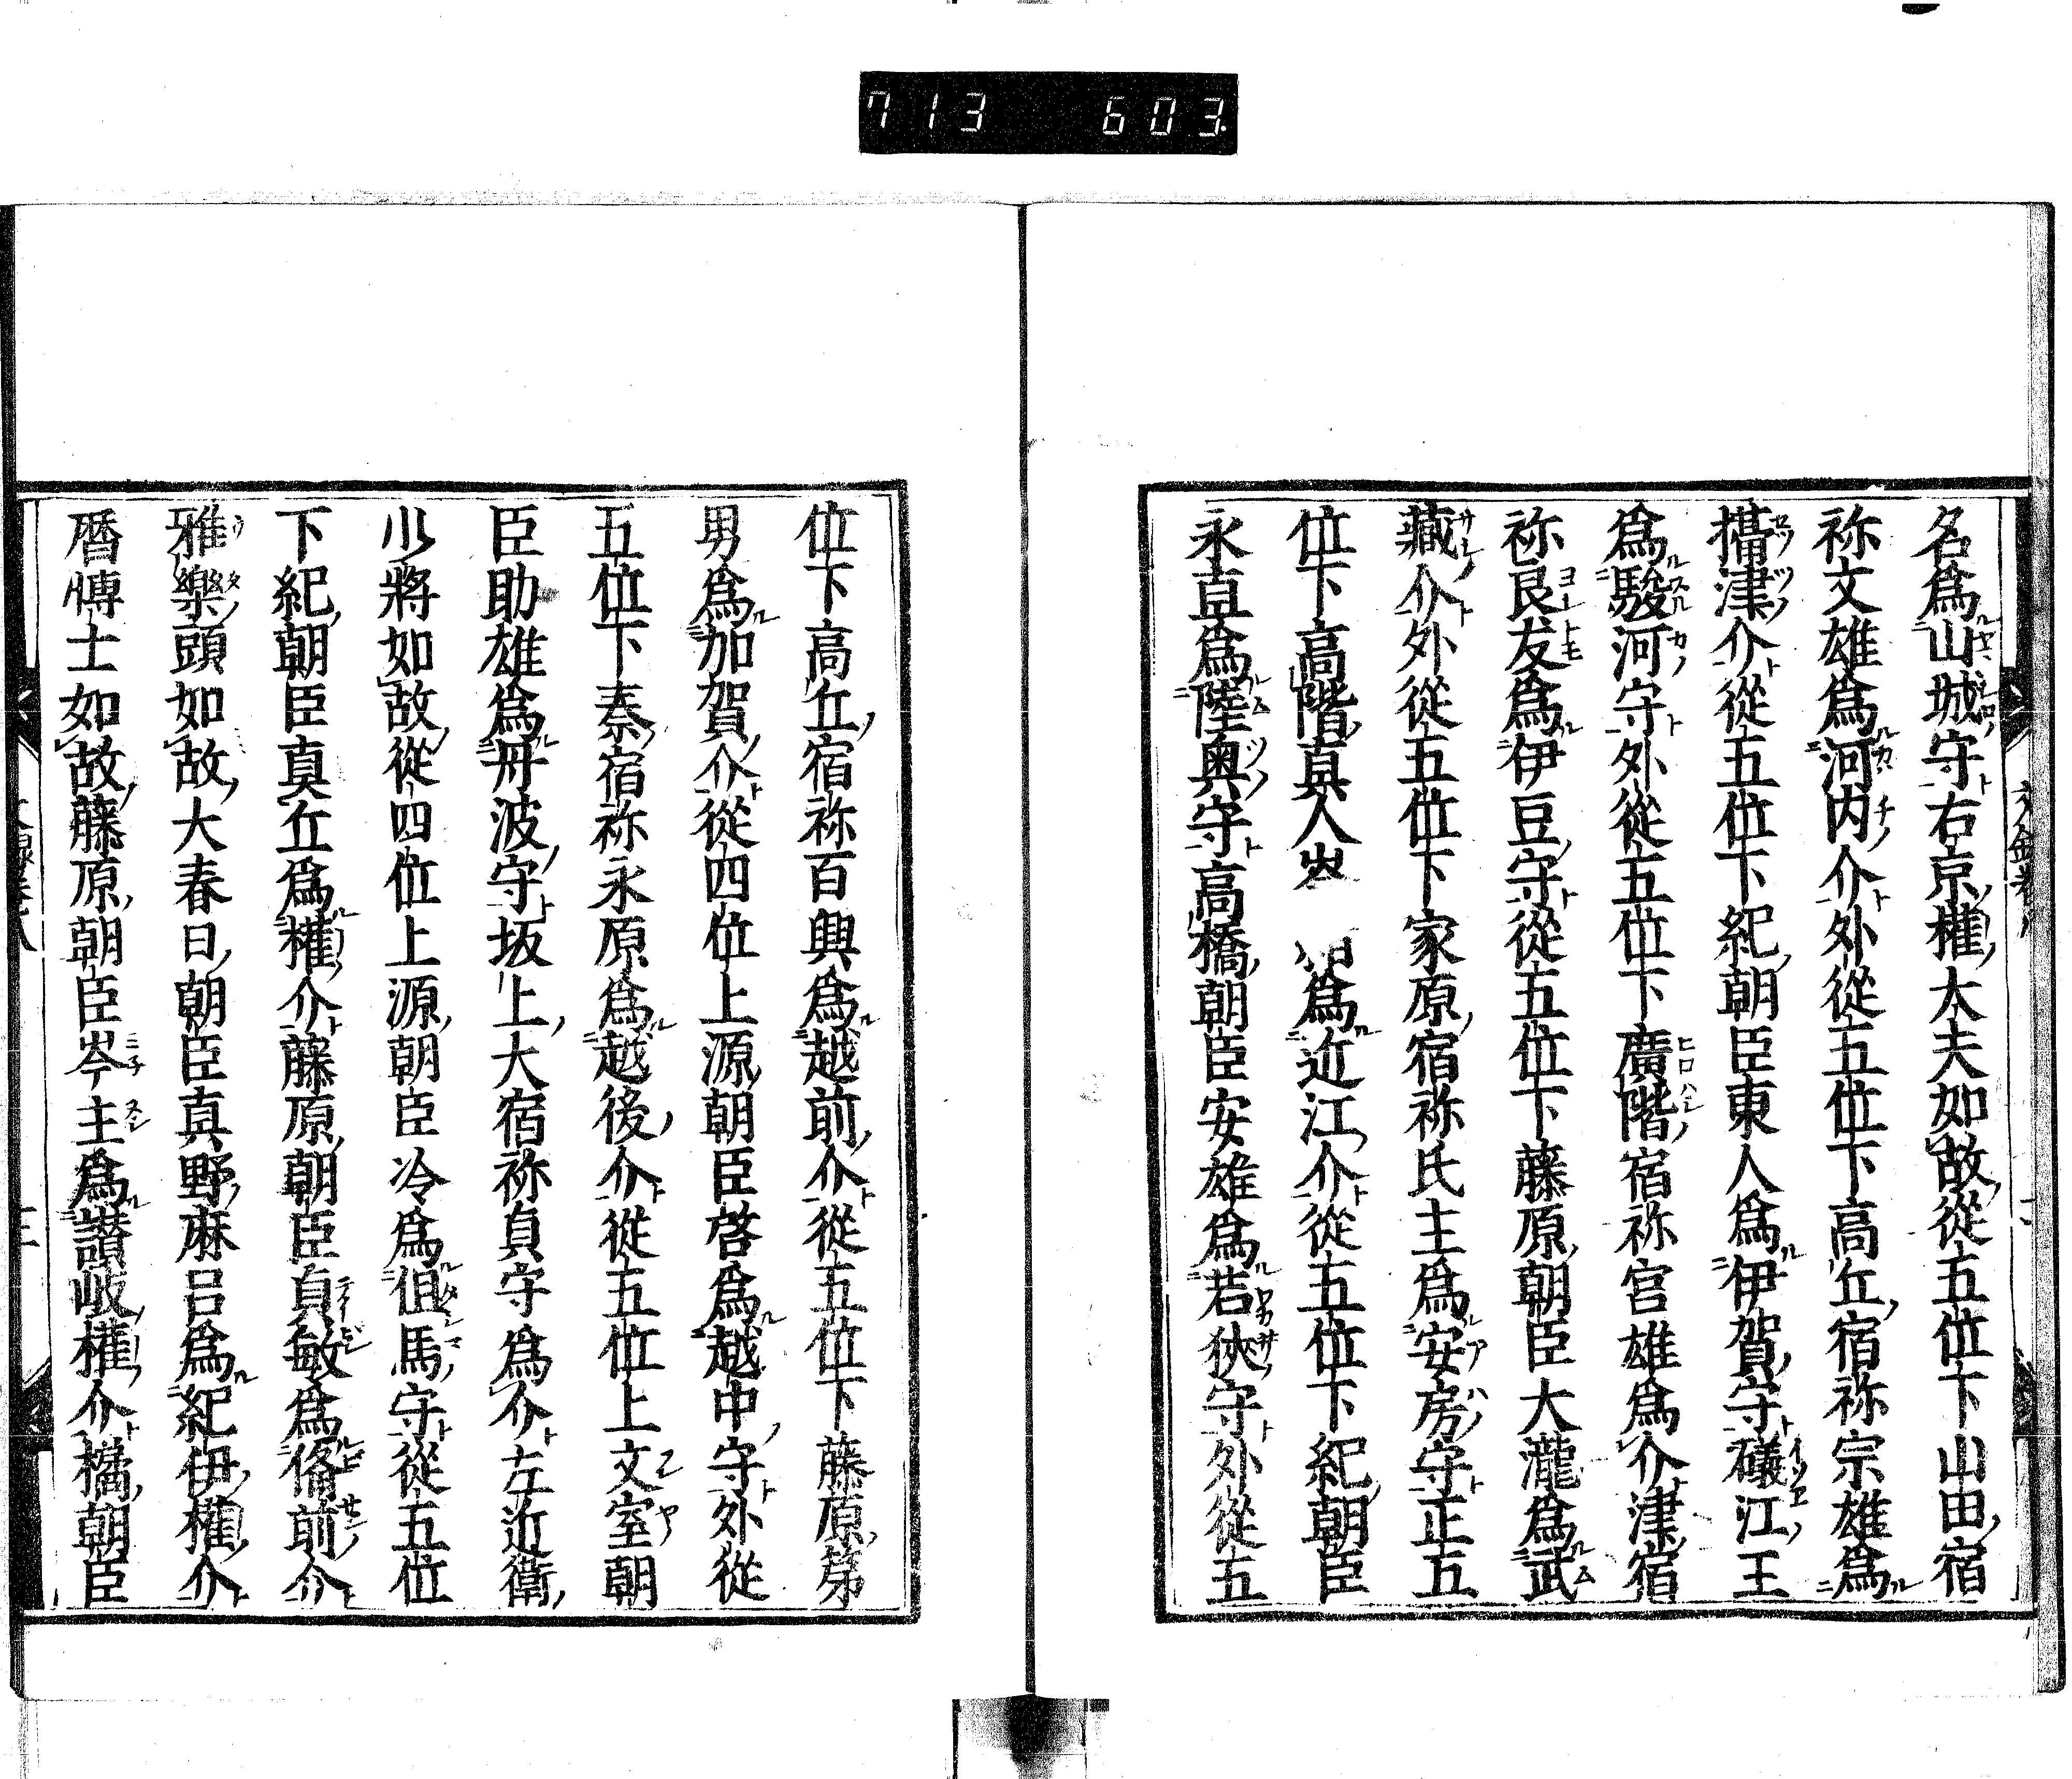 713 603
名爲山城守右京權大夫如故從五位下山田宿
祢文雄爲河内介外從五位下高丘宿祢宗雄爲
攝津介從五位下紀朝臣東人爲伊賀守礒江王
爲駿河守外從五位下廣階宿祢宮雄爲介津宿
祢良友爲伊豆守從五位下藤原朝臣大瀧爲武
藏介外從五位下家原宿祢氏主爲安房守正五
位下高階真人爲近江介從五位下紀朝臣
永直爲陸奥守高橋朝臣安雄爲若狹守外從五
位下高丘宿祢百興爲越前介從五位下藤原第
男爲加賀介從四位上源朝臣啓爲越中守外從
五位下秦宿祢永原爲越後介從五位上文室朝
臣助雄爲丹波守坂上大宿祢貞守爲介左近衛
少將如故從四位上源朝臣冷爲但馬守從五位
下紀朝臣真丘爲權介藤原朝臣貞敏爲備前介
雅樂頭如故大春日朝臣真野麻呂爲紀伊權介
暦博士如故藤原朝臣岑主爲讃岐權介橘朝臣